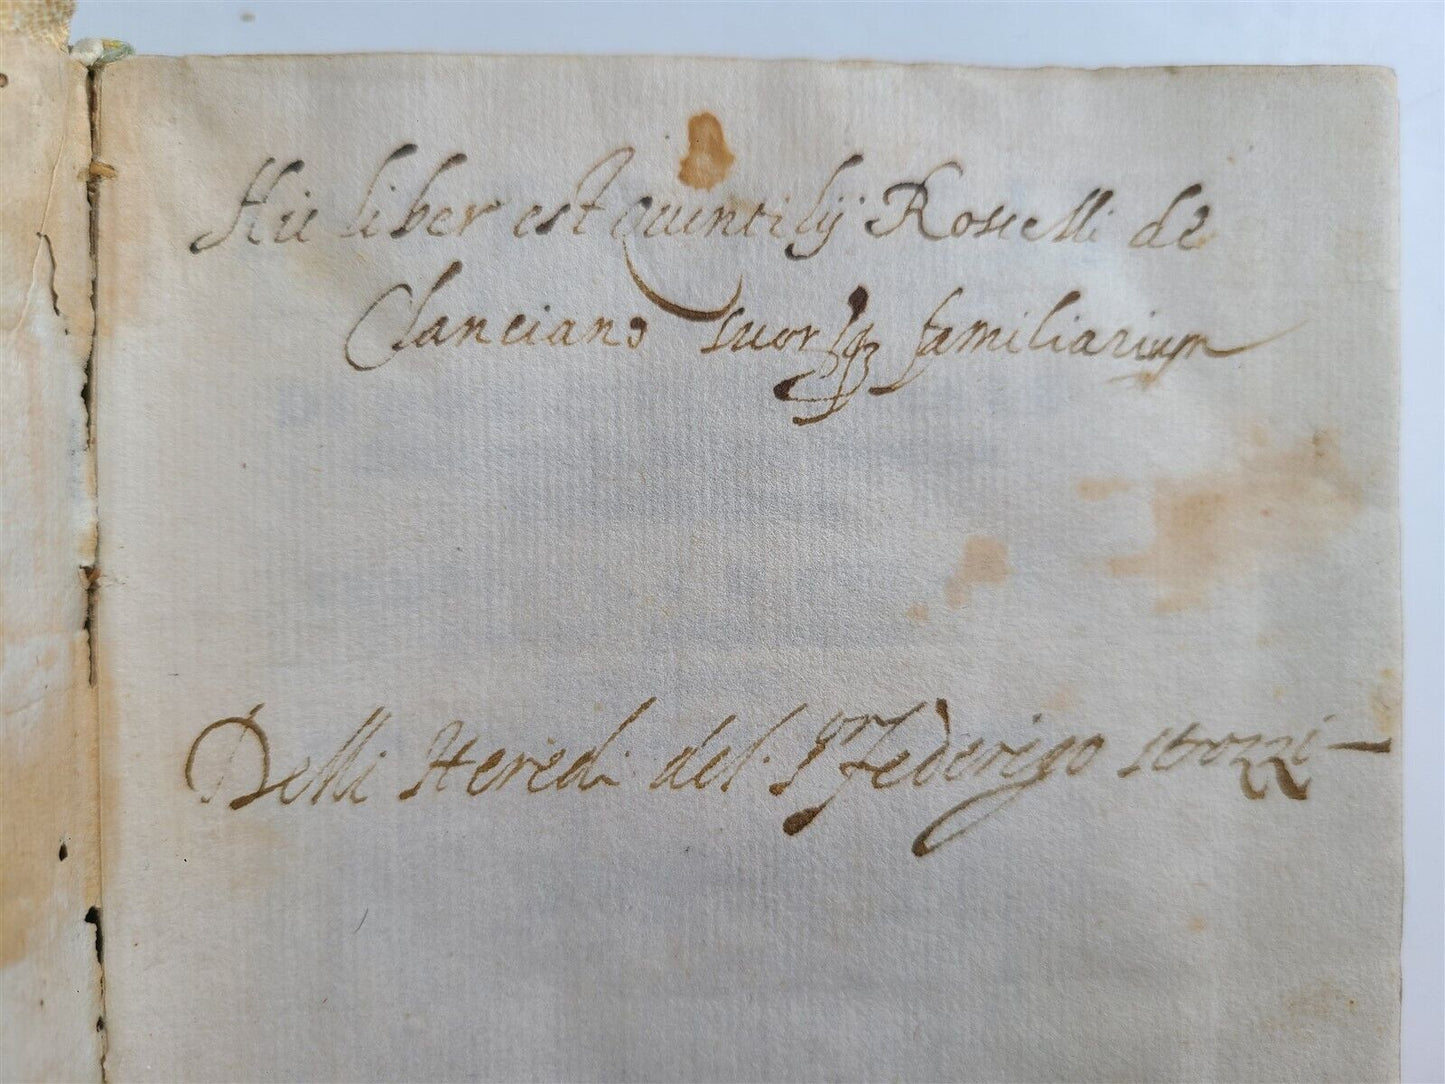 Hic liber est Quintilij Roscelli de
Clanciano suorꝗ familiarium
Delli Heredi del Sʳ Federigo Strozzi